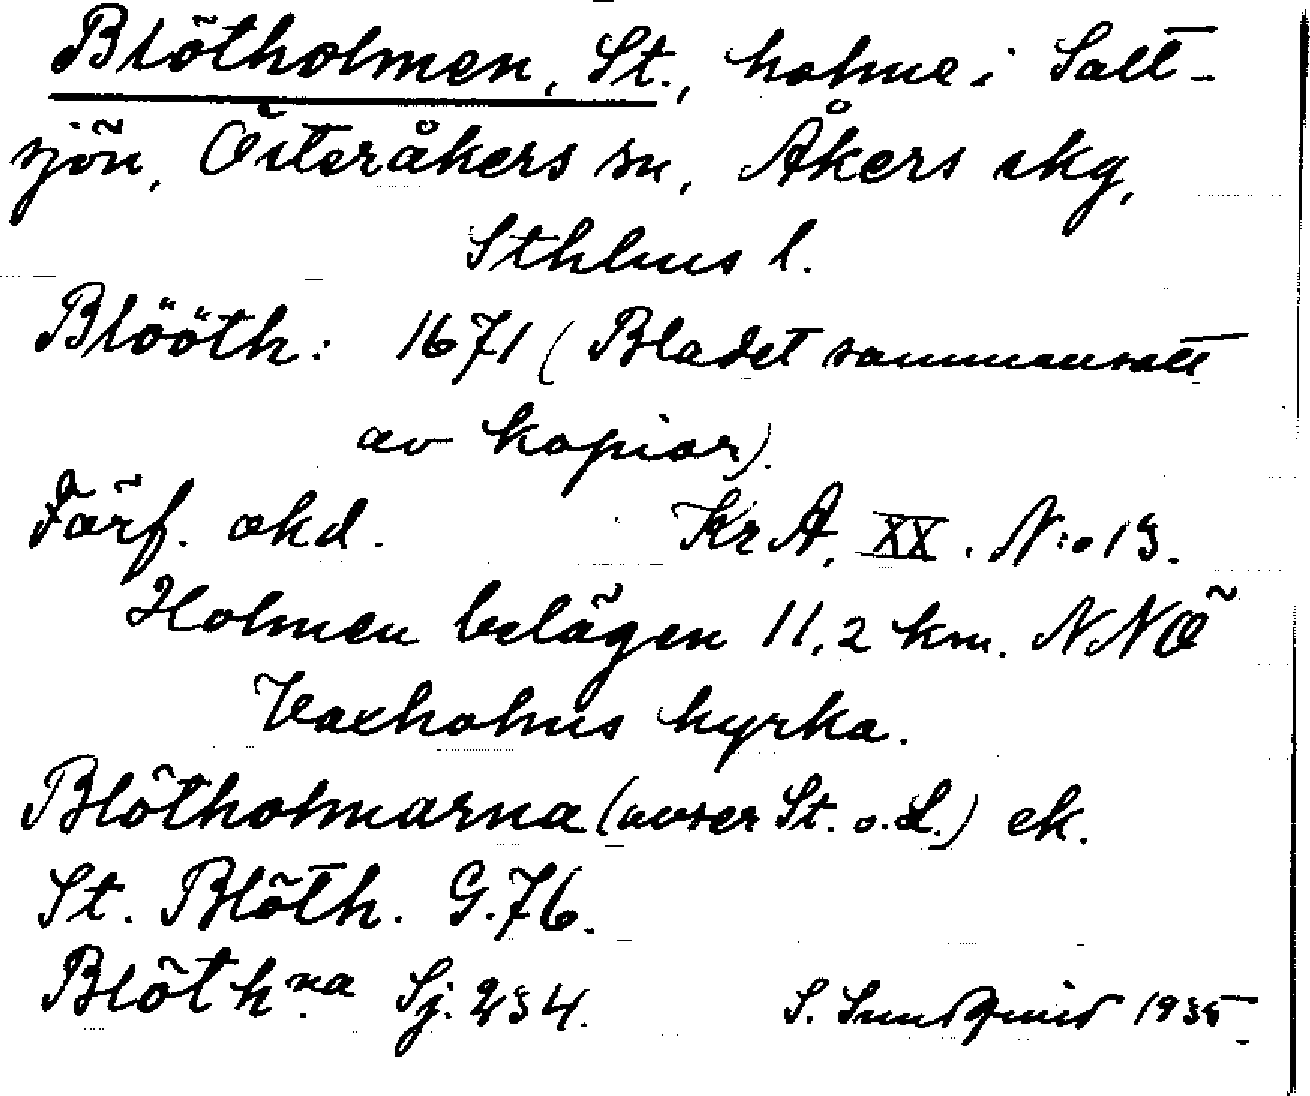 Blötholmen, St., holme i Salt-
sjön, Österåkers sn, Åkers skg,
Sthlms l.
Blööth: 1671 (Bladet sammansatt
av kopior).
Förf. okd. KrA, XX. N:o 13.
Holmen belägen 11,2 km. NNÖ
Vaxholms kyrka.
Blötholmarna (avser St. o. L.) ek.
St. Blöth. G.76.
Blöth.na Sj. 234. S. Sundquist 1935